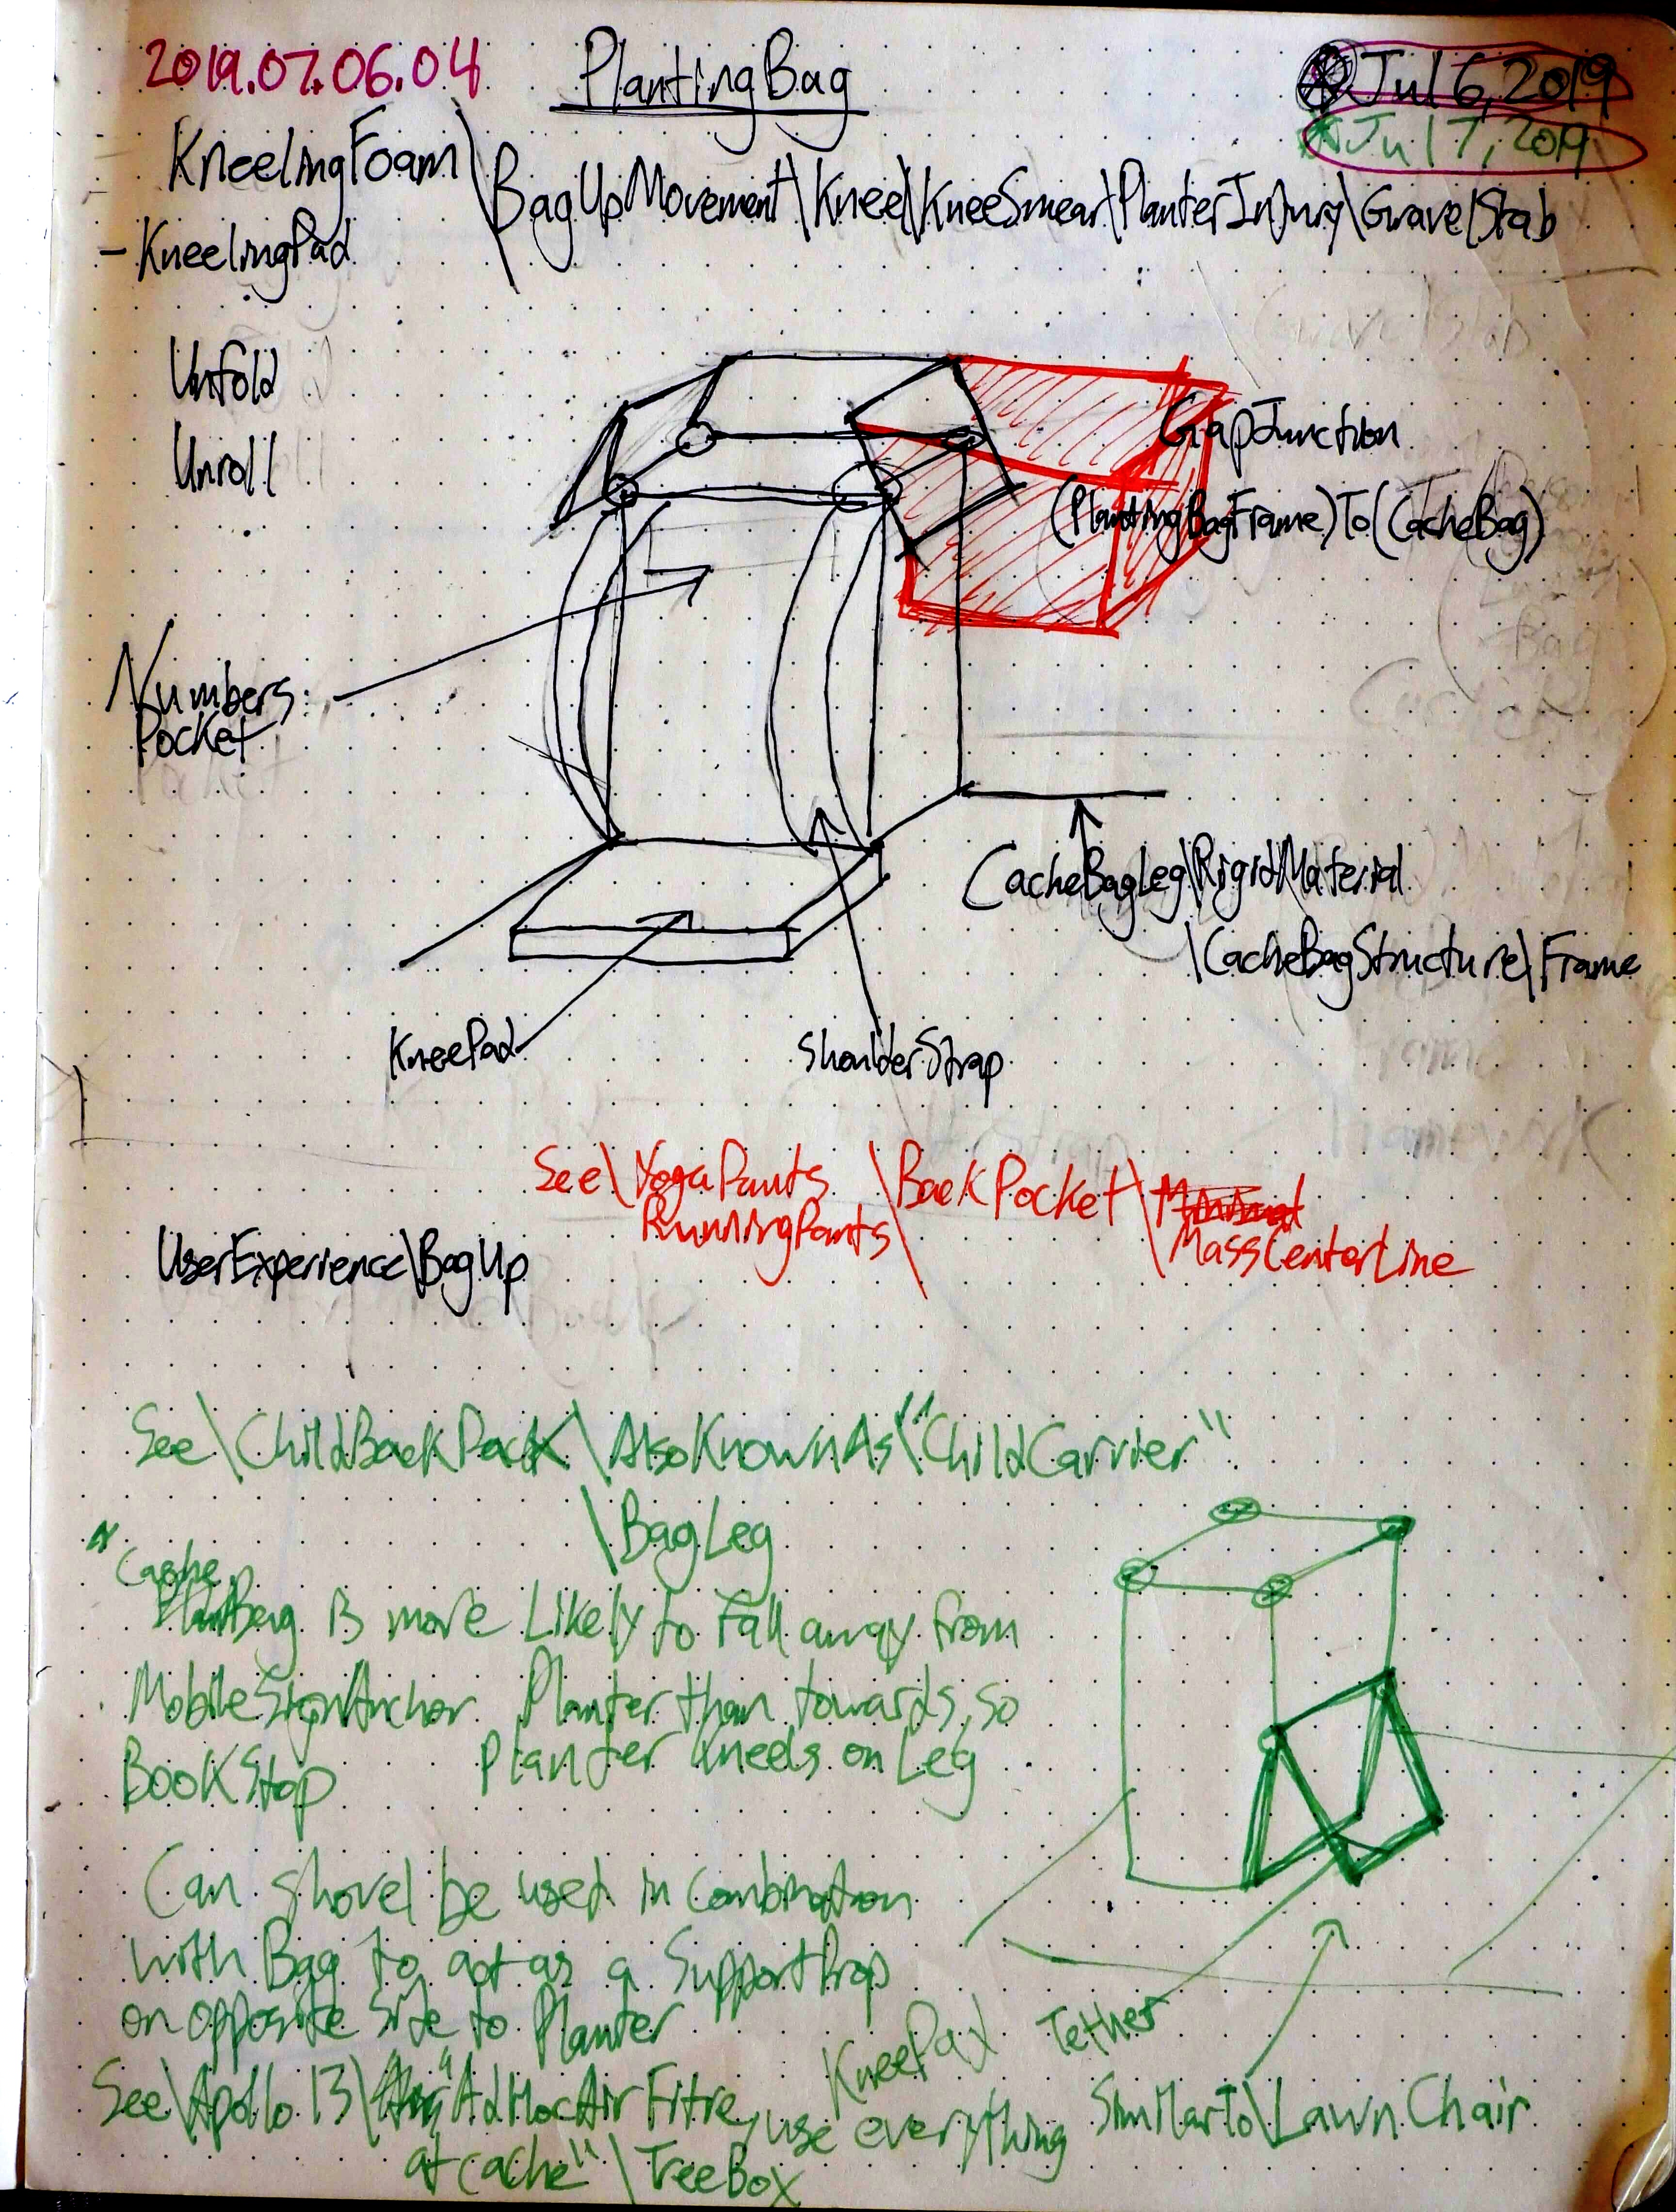 2019.07.06.04
PlantingBag
Jul 6, 2019
Jul 7, 2019
KneelingFoam\BagUpMovement\Kneel\KneeSmear\PlanterInjury\GravelStab
- KneelingPad
Unfold
Unroll
GapJunction
(PlantingBagFrame)To(CacheBag)
Numbers
Pocket
CacheBagLeg\RigidMaterial
\CacheBagStructure\Frame
KneePad
ShoulderStrap
See\YogaPants\BackPocket\
RunningPants
MassCenterLine
UserExperience\BagUp
See\ChildBackPack\AlsoKnownAs\"ChildCarrier"
\BagLeg
Cache
Bag is more Likely to Fall away from
MobileSignAnchor Planter than towards, so
BookStop Planter kneels on Leg
Can shovel be used in combination
with Bag to act as a SupportProp
on opposite side to Planter
KneePad Tether
See\Apollo 13\"AdHocAirFiltre, use everything
at cache"\TreeBox
SimilarTo\LawnChair